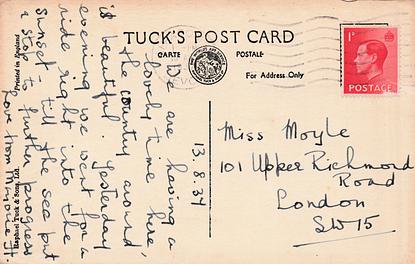 TUCK'S POST CARD
CARTE POSTALE
For Address Only
1D
POSTAGE
Printed in England
Raphael Tuck & Sons, Ltd.
We are having a
lovely time here,
the country around
is beautiful. Yesterday
evening we went for a
ride right into the
sunset - till the sea put
a stop to further progress
Love from Marjorie H.
13.8.37
Miss Moyle
101 Upper Richmond
Road
London
SW15